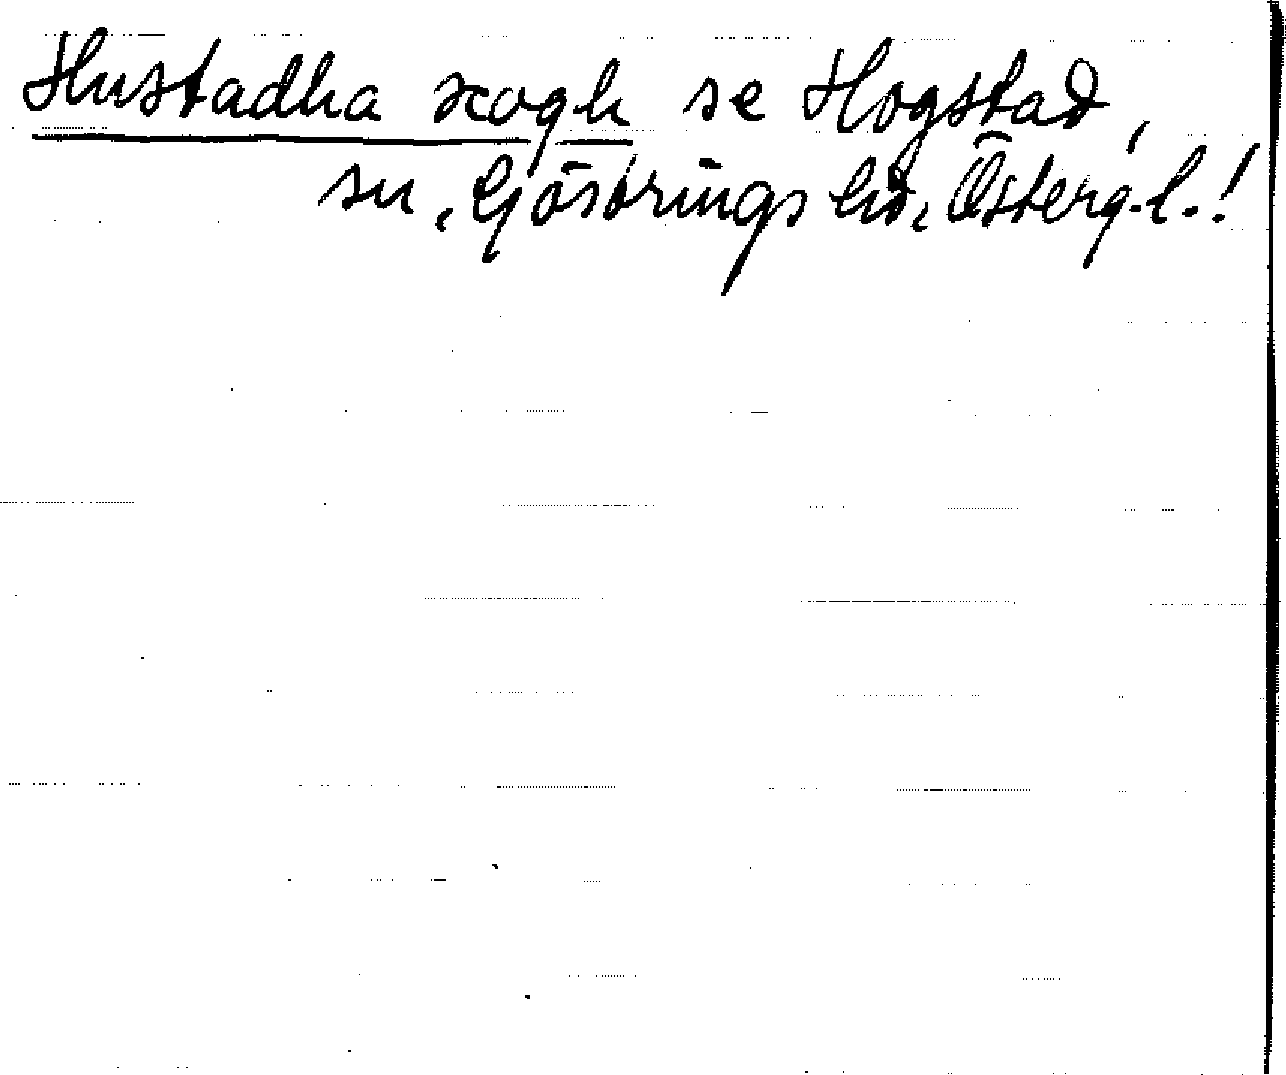 Hustadha scogh se Hogstad,
sn, Göstrings hd, Österg.l.!